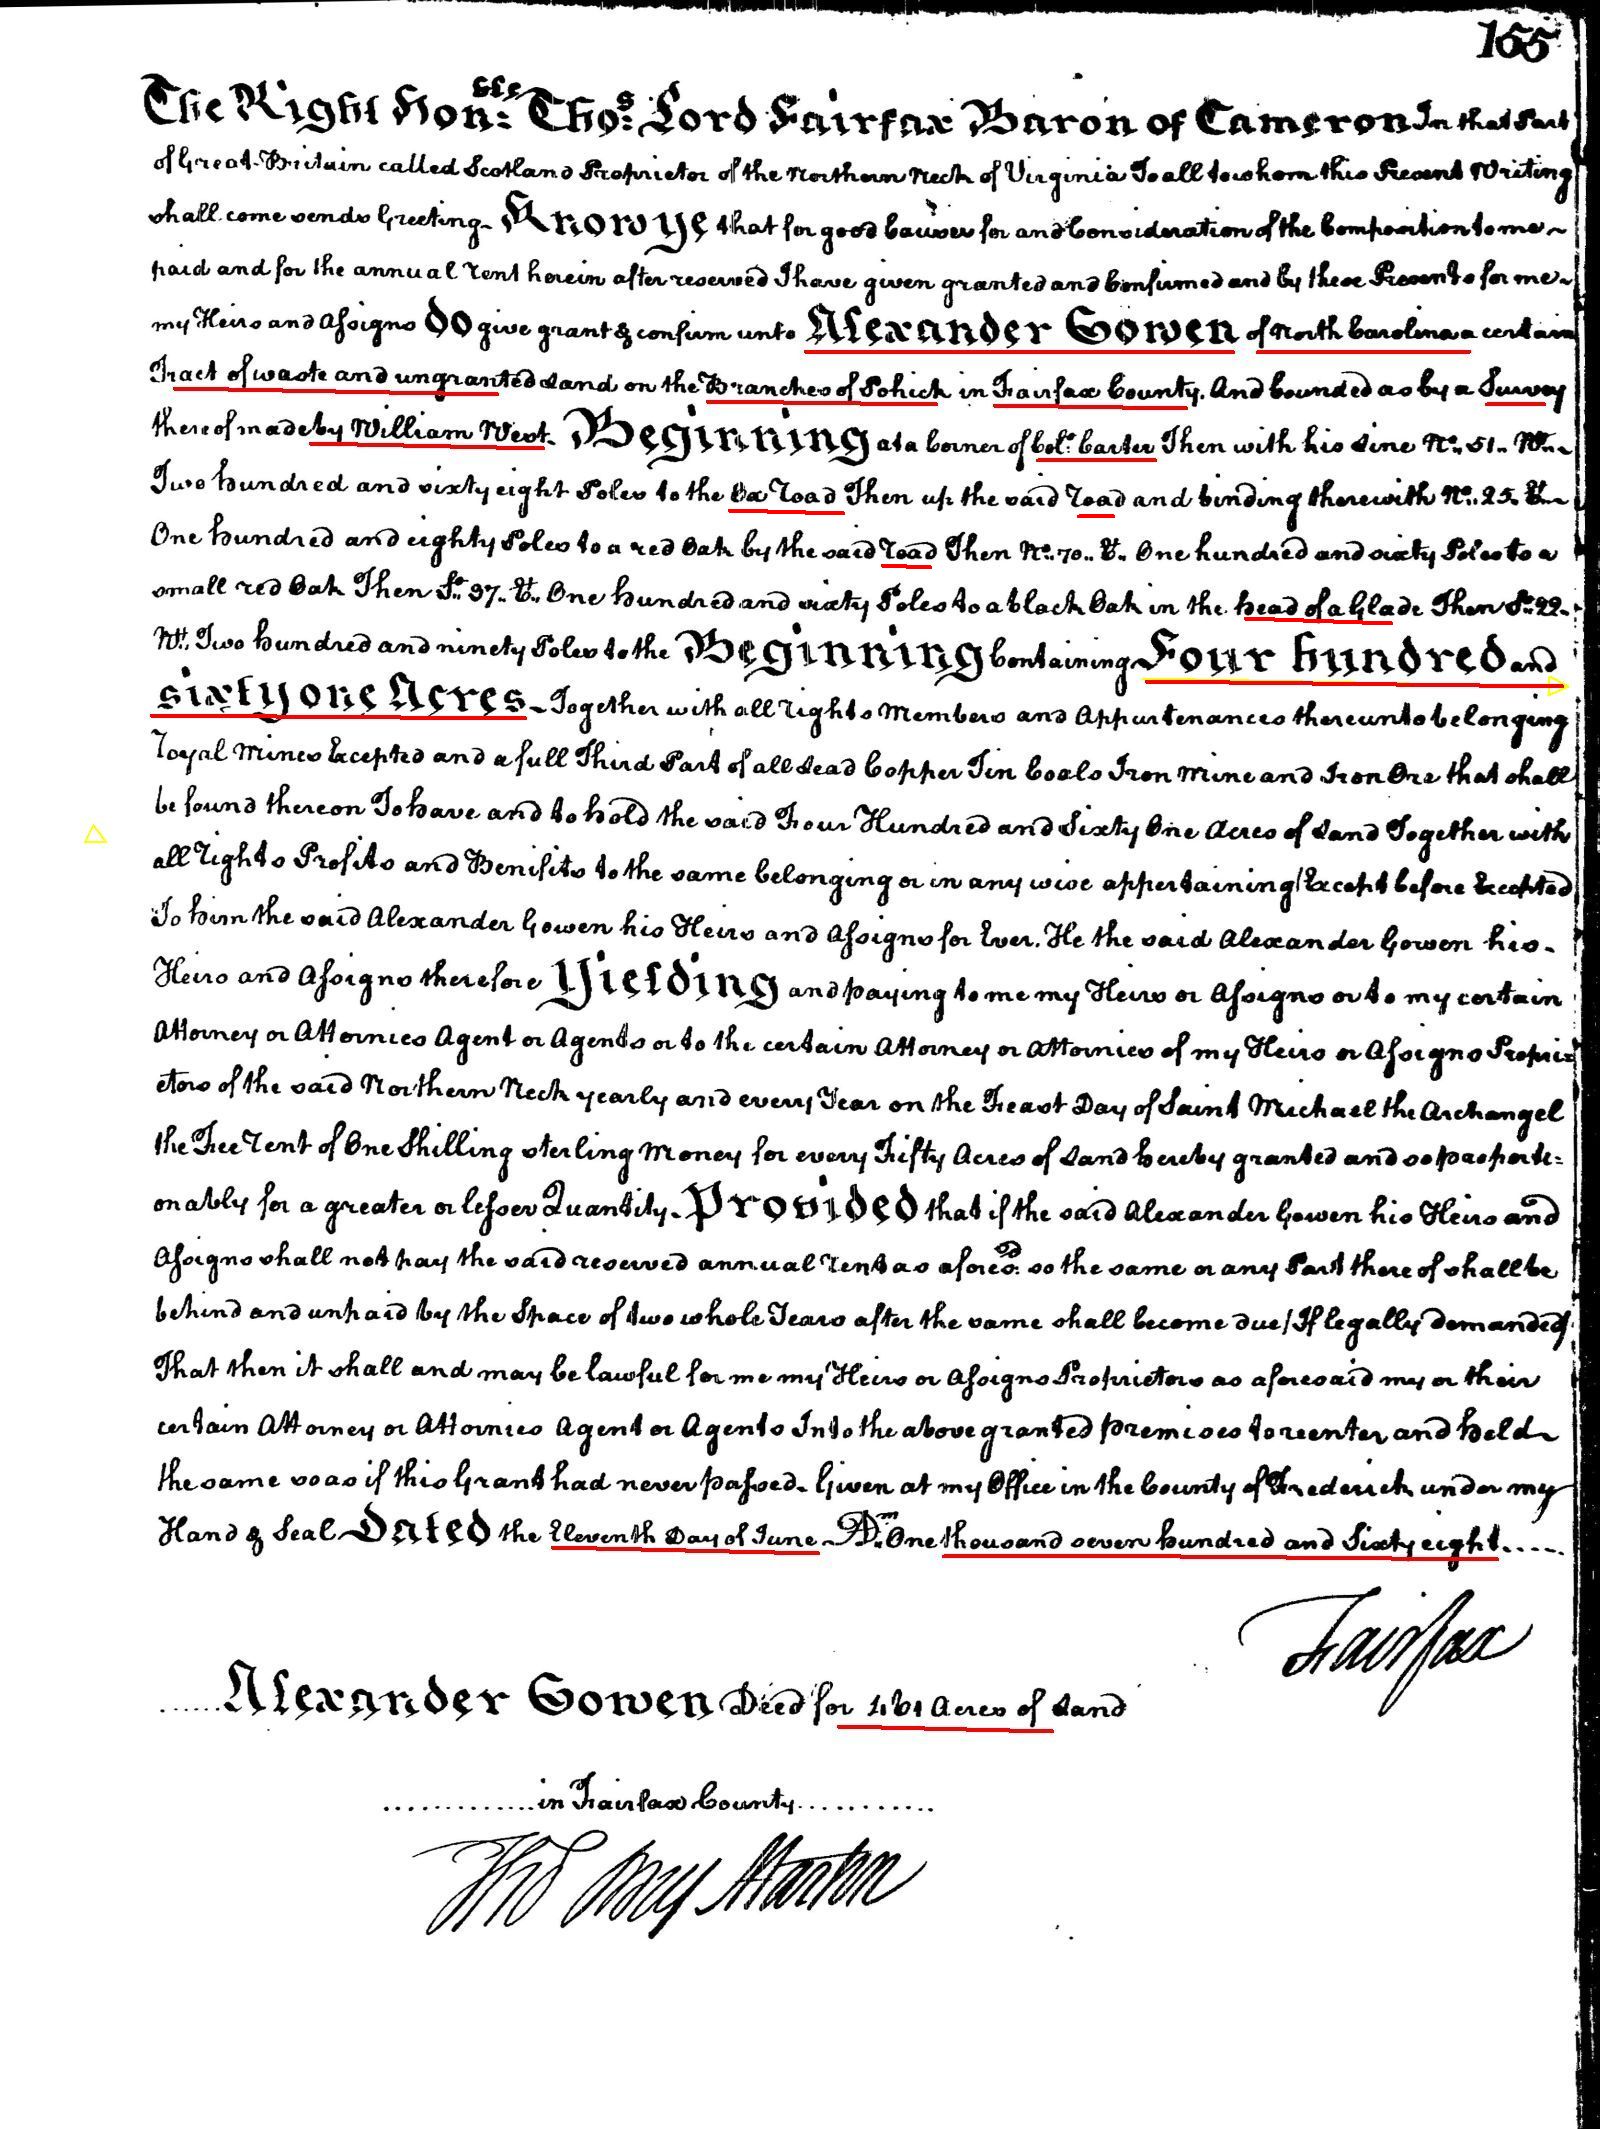 155
The Right Hon:ble Tho:s Lord Fairfax Baron of Cameron In that Part
of Great-Britain called Scotland Proprietor of the Northern Neck of Virginia To all to whom this Present Writing
shall come sends Greeting. Know ye that for good Causes for and Consideration of the Composition to me
paid and for the annual rent herein after reserved I have given granted and Confirmed and by these Presents for me
my Heirs and Assigns do give grant & confirm unto Alexander Gowen of North Carolina a certain
Tract of waste and ungranted Land on the Branches of Pohick in Fairfax County. And bounded as by a Survey
thereof made by William West. Beginning at a Corner of Col:o Carter Then with his Line No. 51.. Wt..
Two hundred and sixty eight Poles to the Ox Road Then up the said Road and binding therewith No.. 25. Et..
One hundred and eighty Poles to a red Oak by the said Road Then No. 70.. Et.. One hundred and sixty Poles to a
small red Oak Then So. 37.. Et.. One hundred and sixty Poles to a black Oak in the head of a Glade Then So. 22..
Wt. Two hundred and ninety Poles to the Beginning Containing Four hundred and
sixty one Acres. Together with all rights Members and Appurtenances thereunto belonging
royal Mines Excepted and a full Third Part of all Lead Copper Tin Coals Iron Mine and Iron Ore that shall
be found thereon To have and to hold the said Four Hundred and Sixty One Acres of Land Together with
all rights Profits and Benifits to the same belonging or in any wise appertaining/Except before Excepted
To him the said Alexander Gowen his Heirs and Assigns for Ever. He the said Alexander Gowen his
Heirs and Assigns therefore Yielding and paying to me my Heirs or Assigns or to my certain
Attorney or Attornies Agent or Agents or to the certain Attorney or Attornies of my Heirs or Assigns Propri=
etors of the said Northern Neck yearly and every Year on the Feast Day of Saint Michael the Archangel
the Fee rent of One Shilling sterling Money for every Fifty Acres of Land hereby granted and so proporti=
onably for a greater or lesser Quantity. Provided that if the said Alexander Gowen his Heirs and
Assigns shall not pay the said reserved annual rent as afores:d so the same or any Part thereof shall be
behind and unpaid by the Space of two whole Years after the same shall become due/If legally demanded/
That then it shall and may be lawful for me my Heirs or Assigns Proprietors as aforesaid my or their
certain Attorney or Attornies Agent or Agents Into the above granted premises to reenter and hold
the same so as if this Grant had never passed. Given at my Office in the County of Frederick under my
Hand & Seal Dated the Eleventh Day of June A:Dm One thousand seven hundred and Sixty eight.....
Fairfax
......Alexander Gowen Deed for 461 Acres of Land
.............in Fairfax County...........
Tho Bry Martin